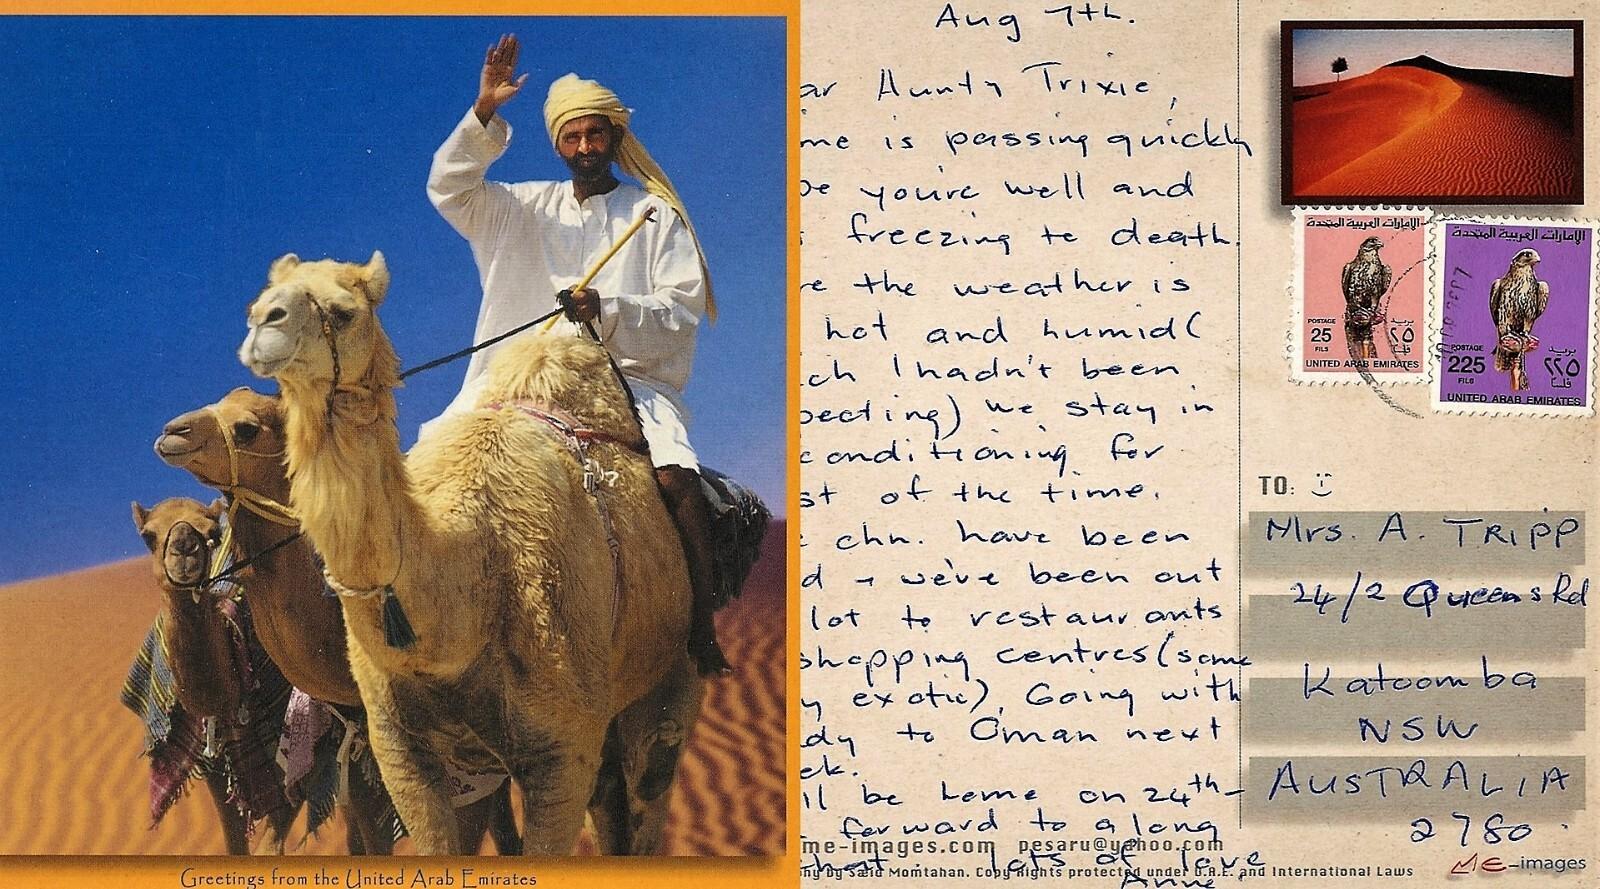 Greetings from the United Arab Emirates
Aug 7th.
ar Aunty Trixie,
me is passing quickly
pe you're well and
freezing to death.
re the weather is
hot and humid (
ch I hadn't been
pecting) we stay in
conditioning for
st of the time.
chn. have been
d + we've been out
lot to restaurants
shopping centres (some
y exotic). Going with
dy to Oman next
ek.
ll be home on 24th -
forward to a long
chat. lots of love
Anne
me-images.com pesaru@yahoo.com
hy by Saeid Momtahan. Copy Rights protected under U.A.E. and International Laws
الإمارات العربية المتحدة
POSTAGE بريد
25 ٢٥
FILS فلسا
UNITED ARAB EMIRATES
الإمارات العربية المتحدة
POSTAGE بريد
225 ٢٢٥
FILS فلسا
UNITED ARAB EMIRATES
TO:
Mrs. A. TRIPP
24/2 Queens Rd
Katoomba
NSW
AUSTRALIA
2780.
ME-images